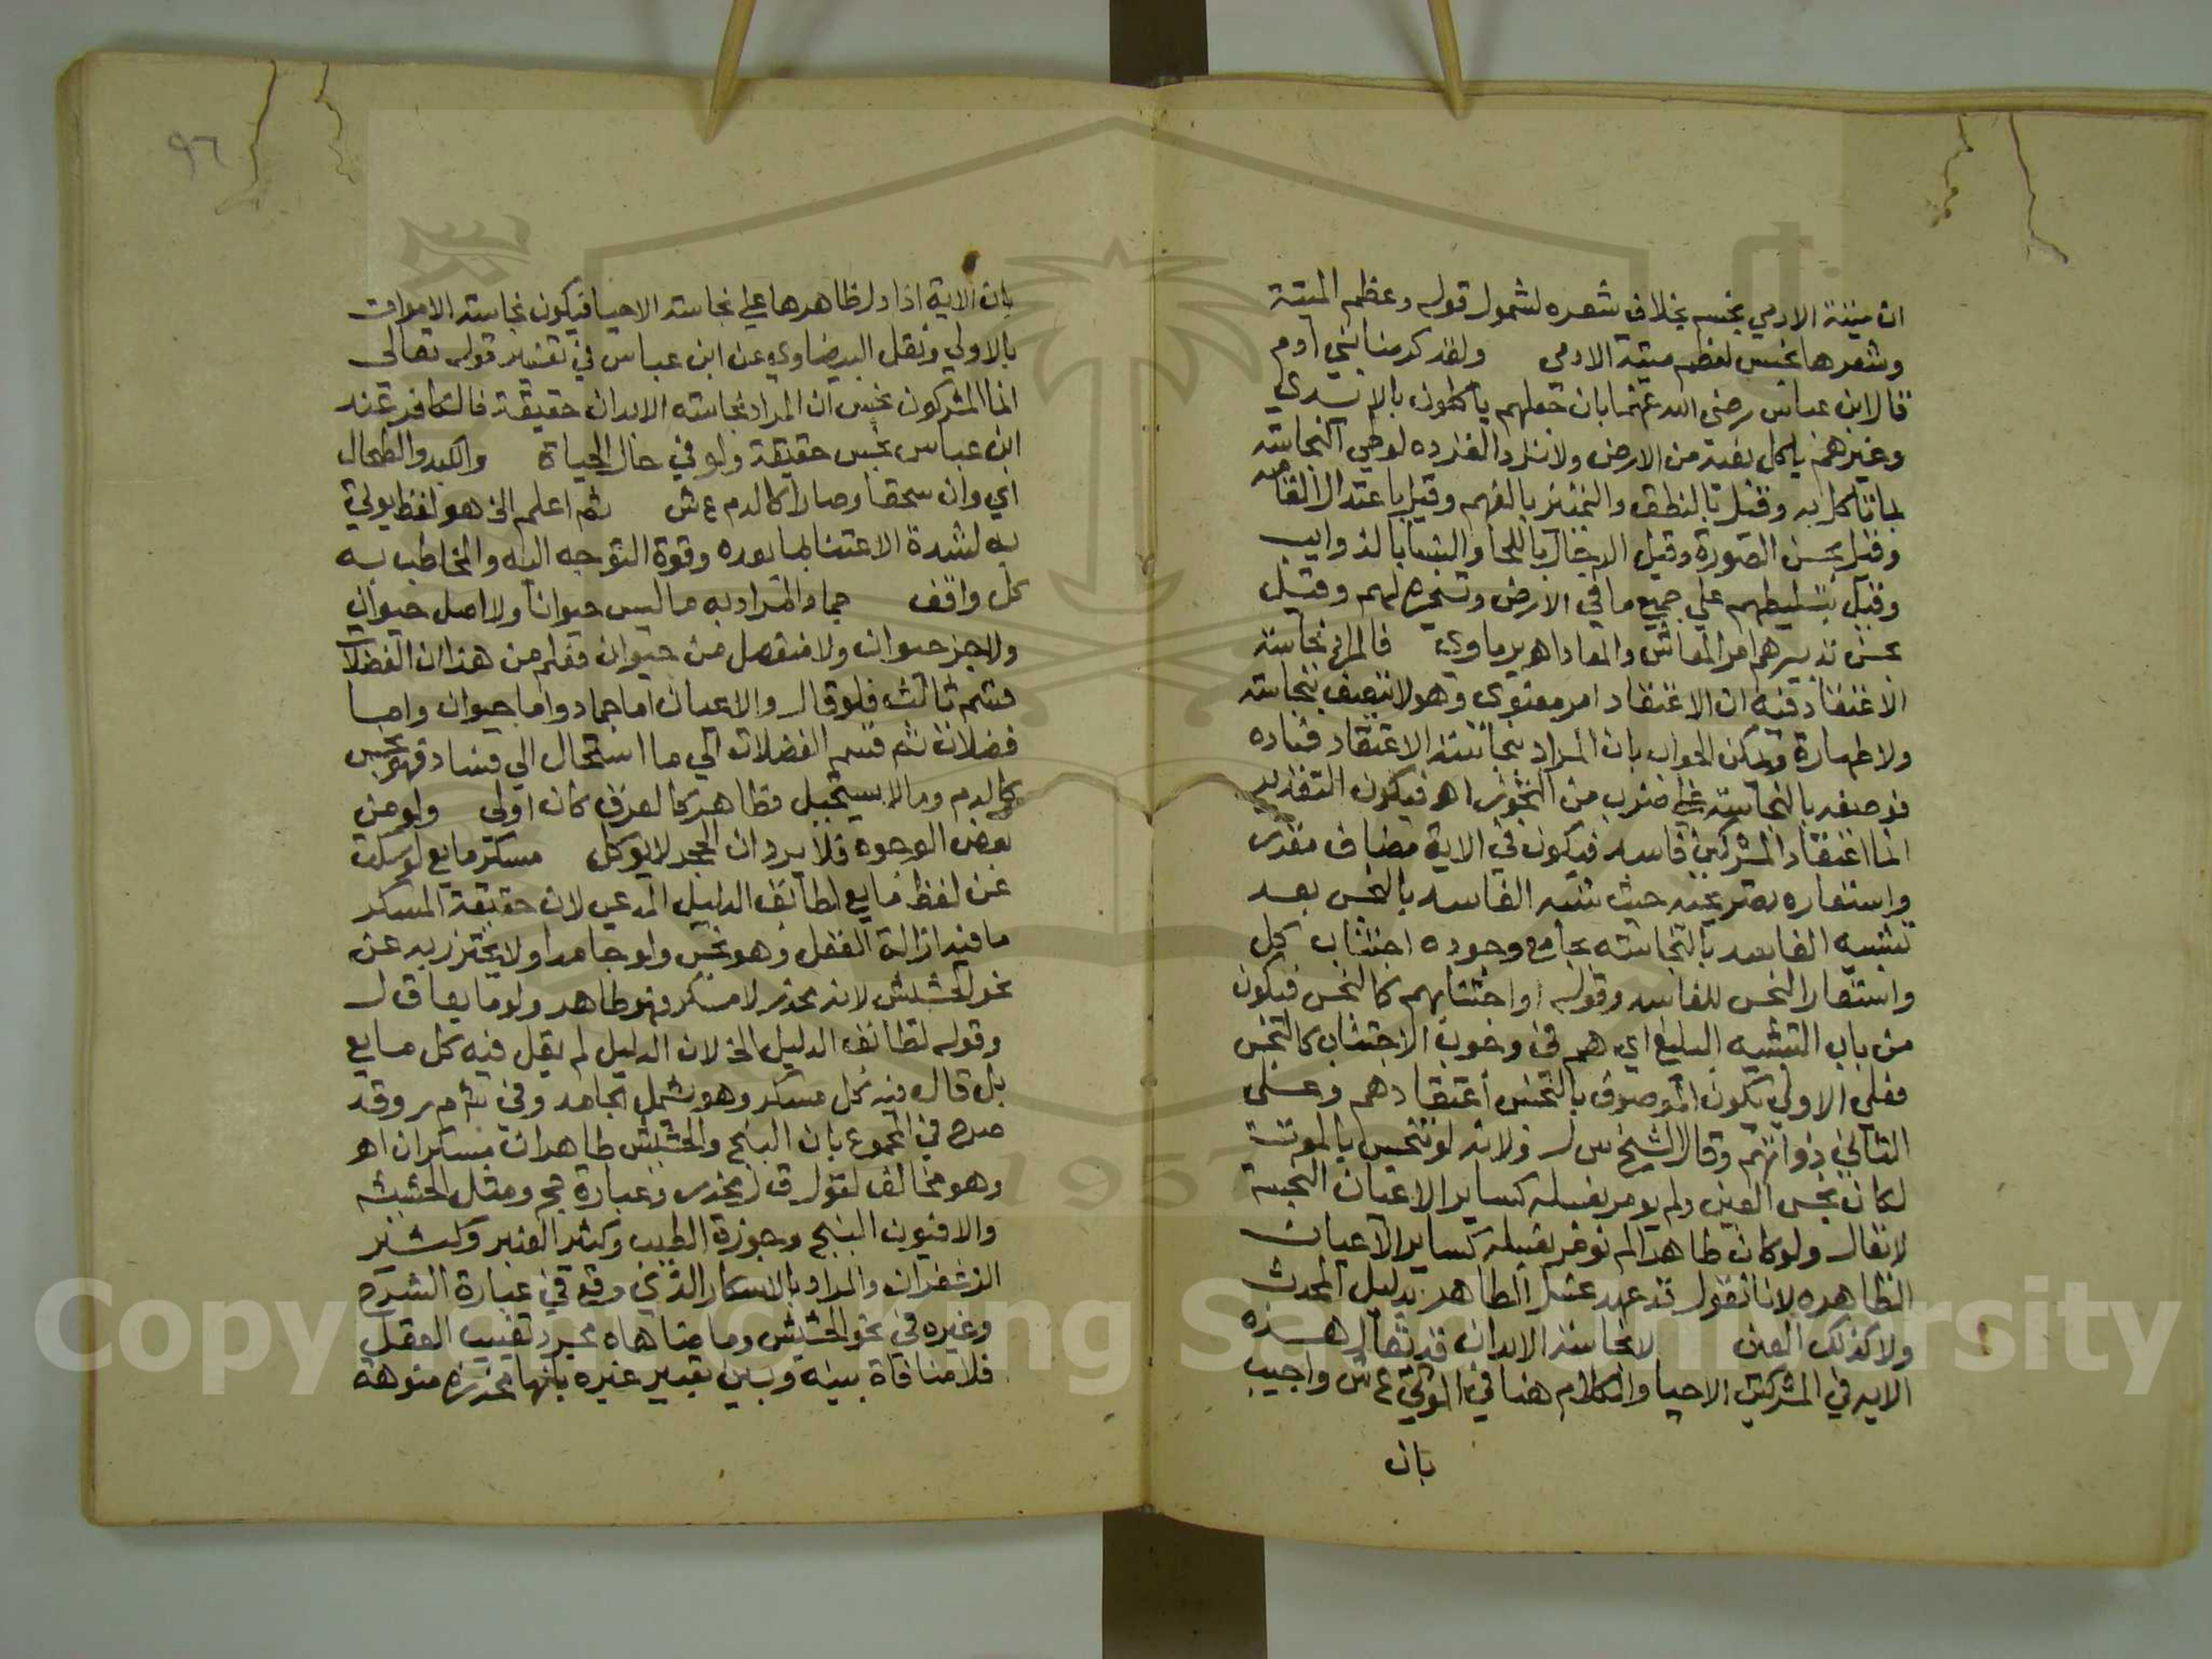 ان ميتة الادمي نجسه بخلاف شعره لشمول قوله وعظم الميتة
وشعرها نجس لعظم ميتة الادمى ولقد كرمنا بني ادم
قال ابن عباس رضي الله عنهما بان جعلهم ياكلون بالايدي
وغيرهم ياكل بفيه من الارض ولا ترد القرده لوطي النجاسة
بما تاكل به وقيل بالنطق والتمييز بالفهم وقيل باعتدال القامه
وقيل بحسن الصورة وقيل الرجال باللحا والنسا بالذوايب
وقيل بتسليطهم علي جميع ما في الارض وتسخيره لهم وقيل
بحسن تدبيرهم امر المعاش والمعاد اهـ برماوي فالمراد نجاسة
الاعتقاد فيه ان الاعتقاد امر معنوى وهو لا يتصف بنجاسة
ولا طهارة ويمكن الجواب بان المراد بنجاسة الاعتقاد فساده
فوصفه بالنجاسة علي ضرب من التجوز اهـ فيكون التقدير
انما اعتقاد المشركين فاسد فيكون في الاية مضاف مقدر
واستعاره تصريحيه حيث شبه الفاسد بالنجس بعد
تشبيه الفاسد بالنجاسة بجامع وجوده اجتناب كل
واستعار النجس للفاسد وقوله او اجتنابهم كالنجس فيكون
من باب التشبيه البليغ اي هم في وجوب الاجتناب كالنجس
فعلي الاولي يكون الموصوف بالنجس اعتقادهم وعلى
الثاني ذواتهم وقال الشيخ س ل ولانه لو تنجس بالموت
لكان نجس العين ولم يومر بغسله كساير الاعيان النجسة
لا يقال ولو كان طاهرا لم نومر بغسله كساير الاعيان
الطاهره لانا نقول قد عهد غسل الطاهر بدليل المحدث
ولا كذلك العين لا نجاسة الابدان قد يقال هذه
الايه في المشركين الاحيا والكلام هنا في الموتي ع ش واجيب
بان
٩٦
بان الاية اذا دل ظاهرها علي نجاسة الاحيا فيكون نجاسة الاموات
بالاولي ونقل البيضاوي عن ابن عباس في تفسير قوله تعالى
انما المشركون نجس ان المراد نجاسة الابدان حقيقة فالكافر عند
ابن عباس نجس حقيقة ولو في حال الحياة والكبد والطحال
اي وان سحقا وصارا كالدم ع ش ثم اعلم الخ هو لفظ يولي
به لشدة الاعتنا بما بعده وقوة التوجه اليه والمخاطب به
كل واقف جماد المراد به ما ليس حيوانا ولا اصل حيوان
ولا جز حيوان ولا منفصل من حيوان فعلم من هذا ان الفضلات
قسم ثالث فلو قال والاعيان اما جماد واما حيوان واما
فضلات ثم قسم الفضلات الي ما استحال الي فساد فهو نجس
كالدم وما لا يستحيل فطاهر كالعرق كان اولي ولو من
بعض الوجوه فلا يرد ان الحجر لا يوكل مسكر مايع لو سكت
عن لفظ مايع لطابق الدليل المدعي لان حقيقة المسكر
ما فيه ازالة العقل وهو نجس ولو جامدا ولا يحترز به عن
نحو الحشيش لانه مخدر لا مسكر فهو طاهر ولو مايعا ق ل
وقوله لطابق الدليل الخ لان الدليل لم يقل فيه كل مايع
بل قال فيه كل مسكر وهو يشمل الجامد وفي ش م ر وقد
صرح في المجموع بان البنج والحشيش طاهران مسكران اهـ
وهو مخالف لقول ق ل مخدر وعبارة حج ومثل الحشيشه
والافيون البنج وجوزة الطيب وكثير العنبر وكثير
الزعفران والمراد بالاسكار الذي وقع في عبارة الشرح
وغيره في نحو الحشيش وما ضاهاه مجرد تغييب العقل
فلا منافاة بينه وبين تعبير غيره بانها مخدره